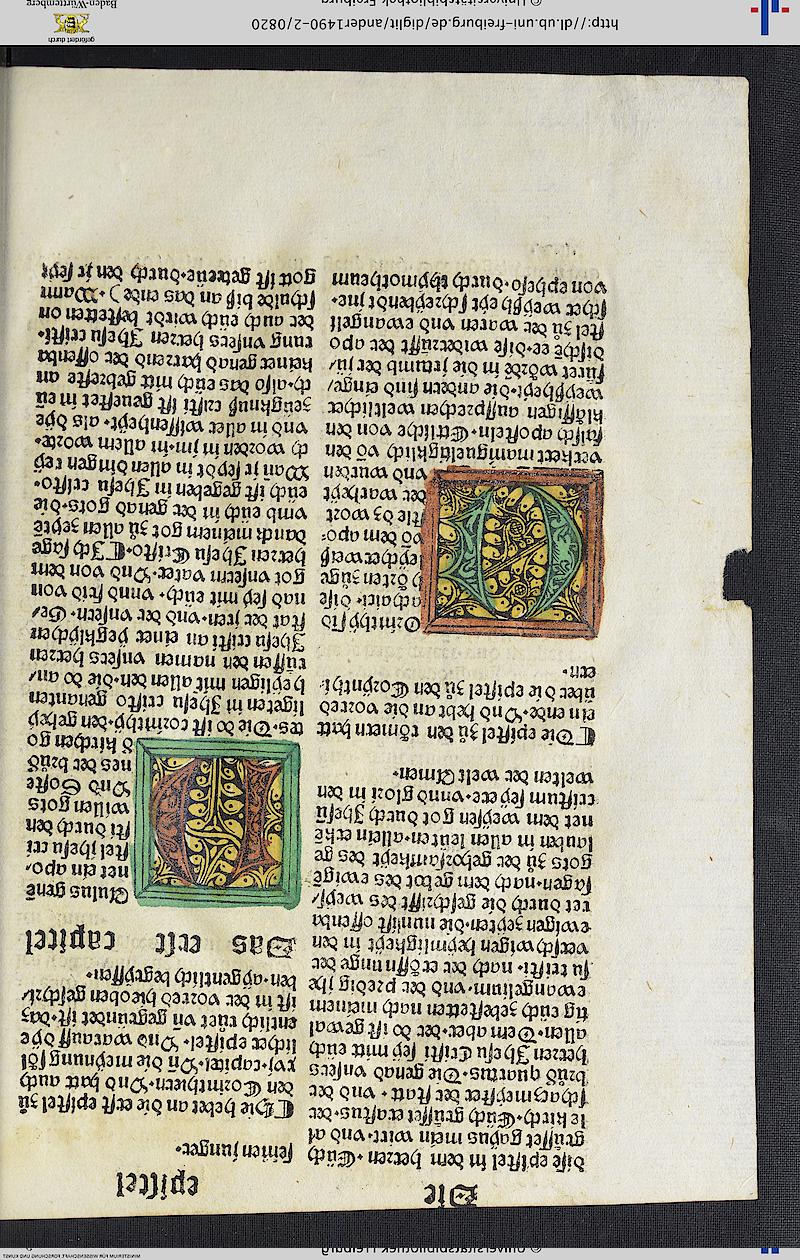 Die epistel
dise epistel in dem herren·Eüch
grüsset gayus mein wirt·vnd al
le kirch·Eüch grüsset erastus·der
schaczmeyster der statt· vnd der
brůd quartus·Die genad vnsers
herren Jhesu Cristi sey mitt eüch
allen·Dem aber·der do ist gewal
tig eüch zebestetten nach meinem
ewangelium·vnd der predig ihe
su cristi· nach der eröffnunge der
verschwigen heymligkeyt in den
ewigen zeyten·die nun ist offenba
ret durch die geschrifft des weyß/
sagen·nach dem gebot des ewigē
gots zů der gehorsamkeyt des ge
lauben in allen leüten·allein erkē
net dem weysen got durch Jhesū
cristum sey ere·vnnd glori in den
welten der welt Amen·
¶Die epistel zů den römern hatt
ein ende·Vnd hebt an die vorred
über die epistel zů den Corynthi·
ern·
COrinthy sīd
achaici· dise
örten zůge
vō dem apo·
stle dz wort
der warheyt
vnd wurden
verkert manigueltigklich vō den
falsch aposteln·Ettliche von den
klåffigen aussprechen weltlicher
weyßheyt·die andern sind einge/
fůret worden in die irrumb der iü/
disch ee·dise widerrůfft der apo
stel zů der waren vnd ewangeli
scher weyßheyt schreybendt ine·
von epheso·durch thymotheum
seinen iunger·
¶Die hebet an die erst epistel zů
den Corinthiern·Vnd hatt auch
xvi·capitel·Vn̄ die meynung sől
licher epistel· Vnd warauff dye
entlich růet vn̄ gegründet ist·das
ist in der vorred hieoben geschri/
ben·aygentlich begryffen·
Das erst capitel
PAulus genē
net ein apo/
stel ihesu cri
sti durch den
willen gots
Vnd Soste
nes der brůd
d kirchen go
tes·Die do ist corinthy·den gehey
ligeten in Jhesu cristo genanten
heyligen mit allen den·die do an/
růffen den namen vnsers herren
Jhesu cristi an einer yegklichen
stat der iren·vnd der vnsern·Ge/
nad sey mit eüch·vnnd frid von
got vnserm vater·Vnd von dem
herren Jhesu Cristo·¶Ich sage
danck meinem got zů allen zeytē
vmb eüch in der genad gots·die
eüch ist gegeben in Jhesu cristo·
Wan ir seydt in allen dingen rey
ch worden in im·in allem worte·
vnd in aller wissenheyt·als dye
zeügknuß cristi ist geuestet in eü
ch·also das eüch nitt gebreste an
keiner genad harrend der offenba
rung vnsers herren Jhesu cristi·
der auch eüch wirdt bestetten on
schulde biß an das ende)·Wann
gott ist getreüe·durch den ir seyt
http://dl.ub.uni-freiburg.de/diglit/ander1490-2/0820
© Universitätsbibliothek Freiburg
gefördert durch
Baden-Württemberg
MINISTERIUM FÜR WISSENSCHAFT, FORSCHUNG UND KUNST